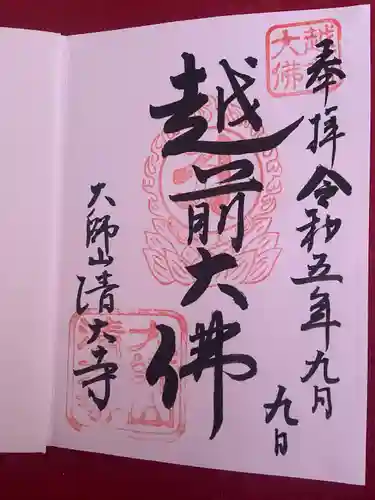 奉拝 令和五年九月
九日
越大佛
越前大佛
大師山清大寺